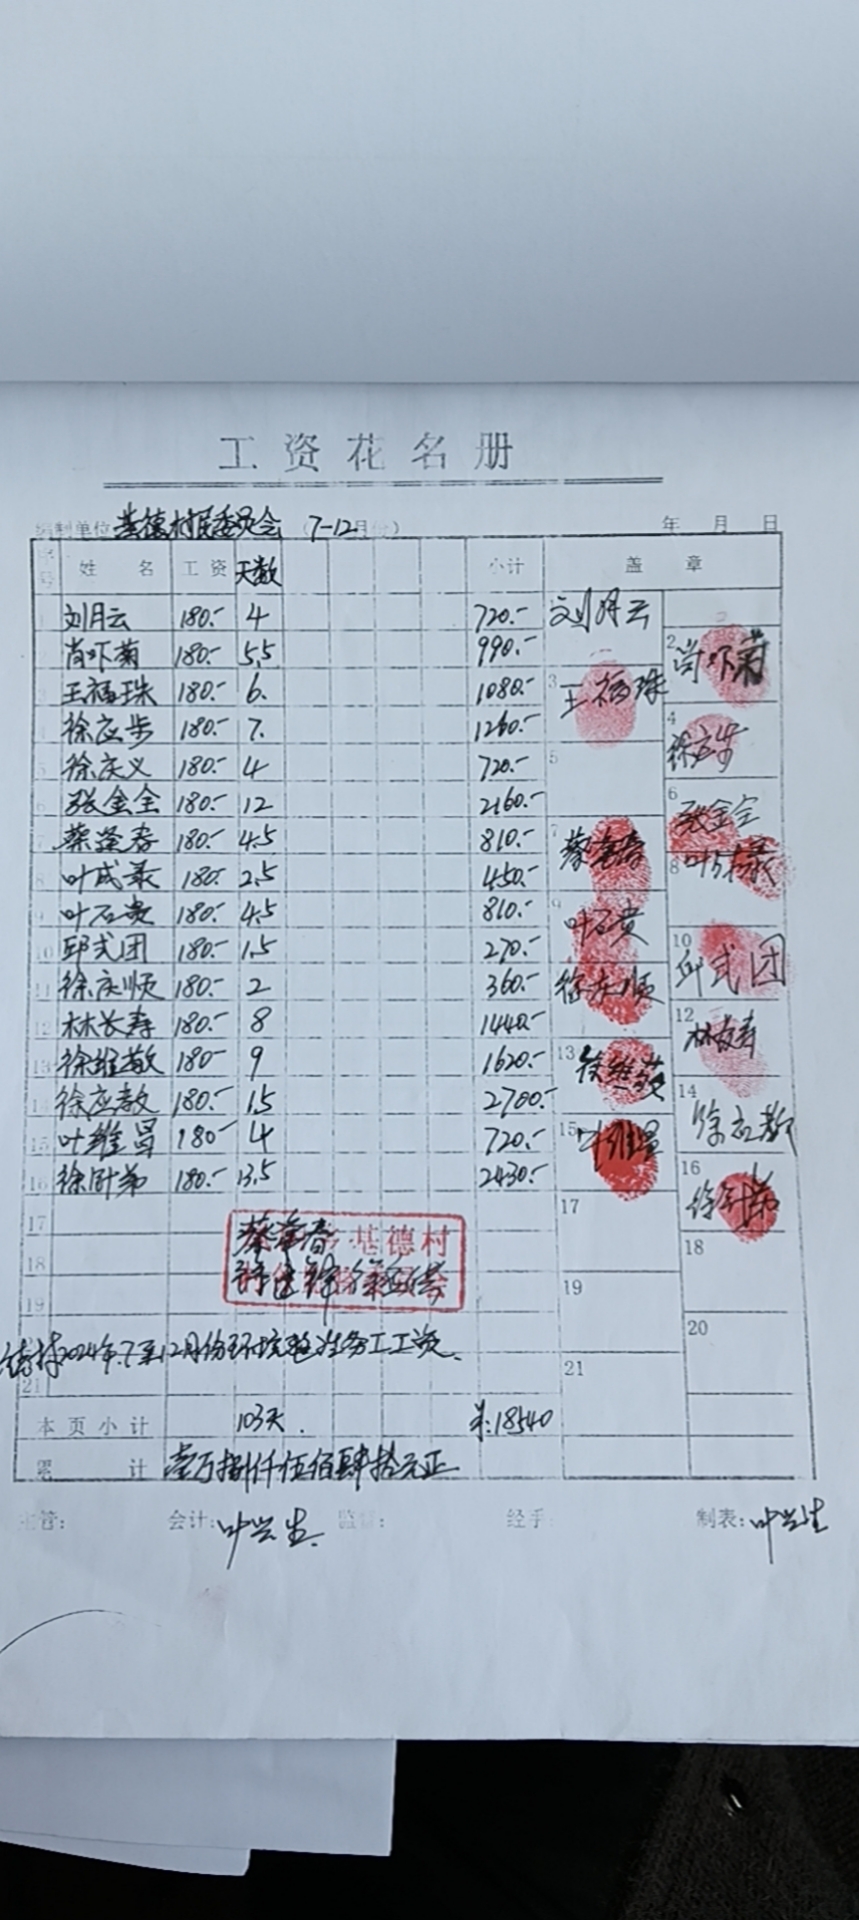 工资花名册
编制单位 基德村民委员会 (7-12月份) 年 月 日
序号 姓名 工资 天数 小计 盖章
1 刘月云 180.- 4 720.- 刘月云
2 肖环菊 180.- 5.5 990.- 2 肖环菊
3 王福珠 180.- 6. 1080.- 3 王福珠
4 徐应步 180.- 7. 1260.- 4 徐应步
5 徐庆义 180.- 4 720.- 5
6 张金全 180.- 12 2160.- 6 张金全
7 蔡逢春 180.- 4.5 810.- 7 蔡逢春
8 叶成录 180.- 2.5 450.- 8 叶成录
9 叶石贵 180.- 4.5 810.- 9 叶石贵
10 邱式团 180.- 1.5 270.- 10 邱式团
11 徐庆顺 180.- 2 360.- 徐庆顺
12 林长寿 180.- 8 1440.- 12 林长寿
13 徐维敬 180- 9 1620.- 13 徐维敬
14 徐应敖 180.- 15 2700.- 14 徐应敖
15 叶维昌 180- 4 720.- 15 叶维昌
16 徐尉弟 180.- 13.5 2430.- 16 徐尉弟
17 17
18 基德村 18
19 19
20
2024年7至12月份环境整治务工工资.
21 21
本页小计 103天. 18540
累计 壹万捌仟伍佰肆拾元正
主管: 会计: 叶兴生 监督: 经手: 制表: 叶兴生